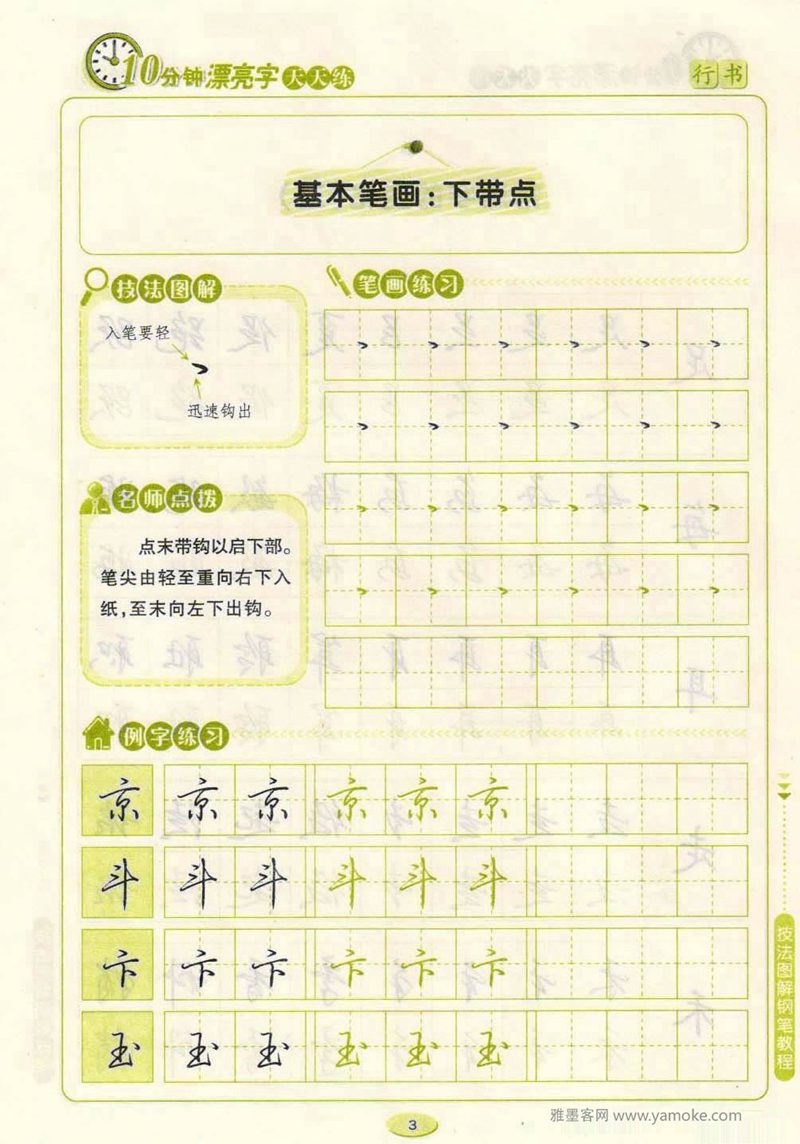 10分钟漂亮字天天练
行书
基本笔画：下带点
技法图解
入笔要轻
迅速钩出
笔画练习
名师点拨
点末带钩以启下部。
笔尖由轻至重向右下入
纸，至末向左下出钩。
例字练习
京 京 京 京 京 京
斗 斗 斗 斗 斗 斗
卞 卞 卞 卞 卞 卞
玉 玉 玉 玉 玉 玉
技法图解钢笔教程
3
雅墨客网 www.yamoke.com